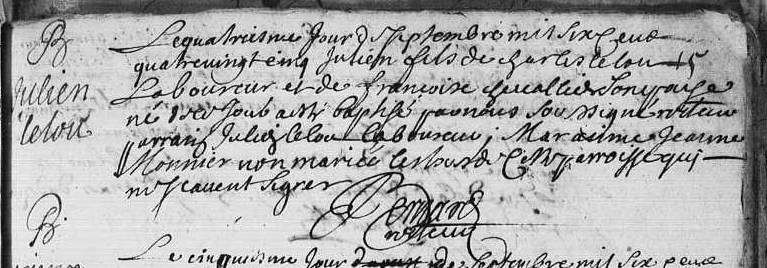 B
Julien
lelou
Le quatriesme Jour de Septembre mil six cens
quatre vingt cinq Julien fils de charles lelou
Laboureur et de francoise chevallier son espouse
né led Jour a esté baptisé par nous soussigné vicaire
parrain Julien lelou laboureur Maraine Jeanne
Monnier non mariée les tous de parroisse qui
ne scavent signer
B
Le cinquiesme Jour de Septembre mil six cens